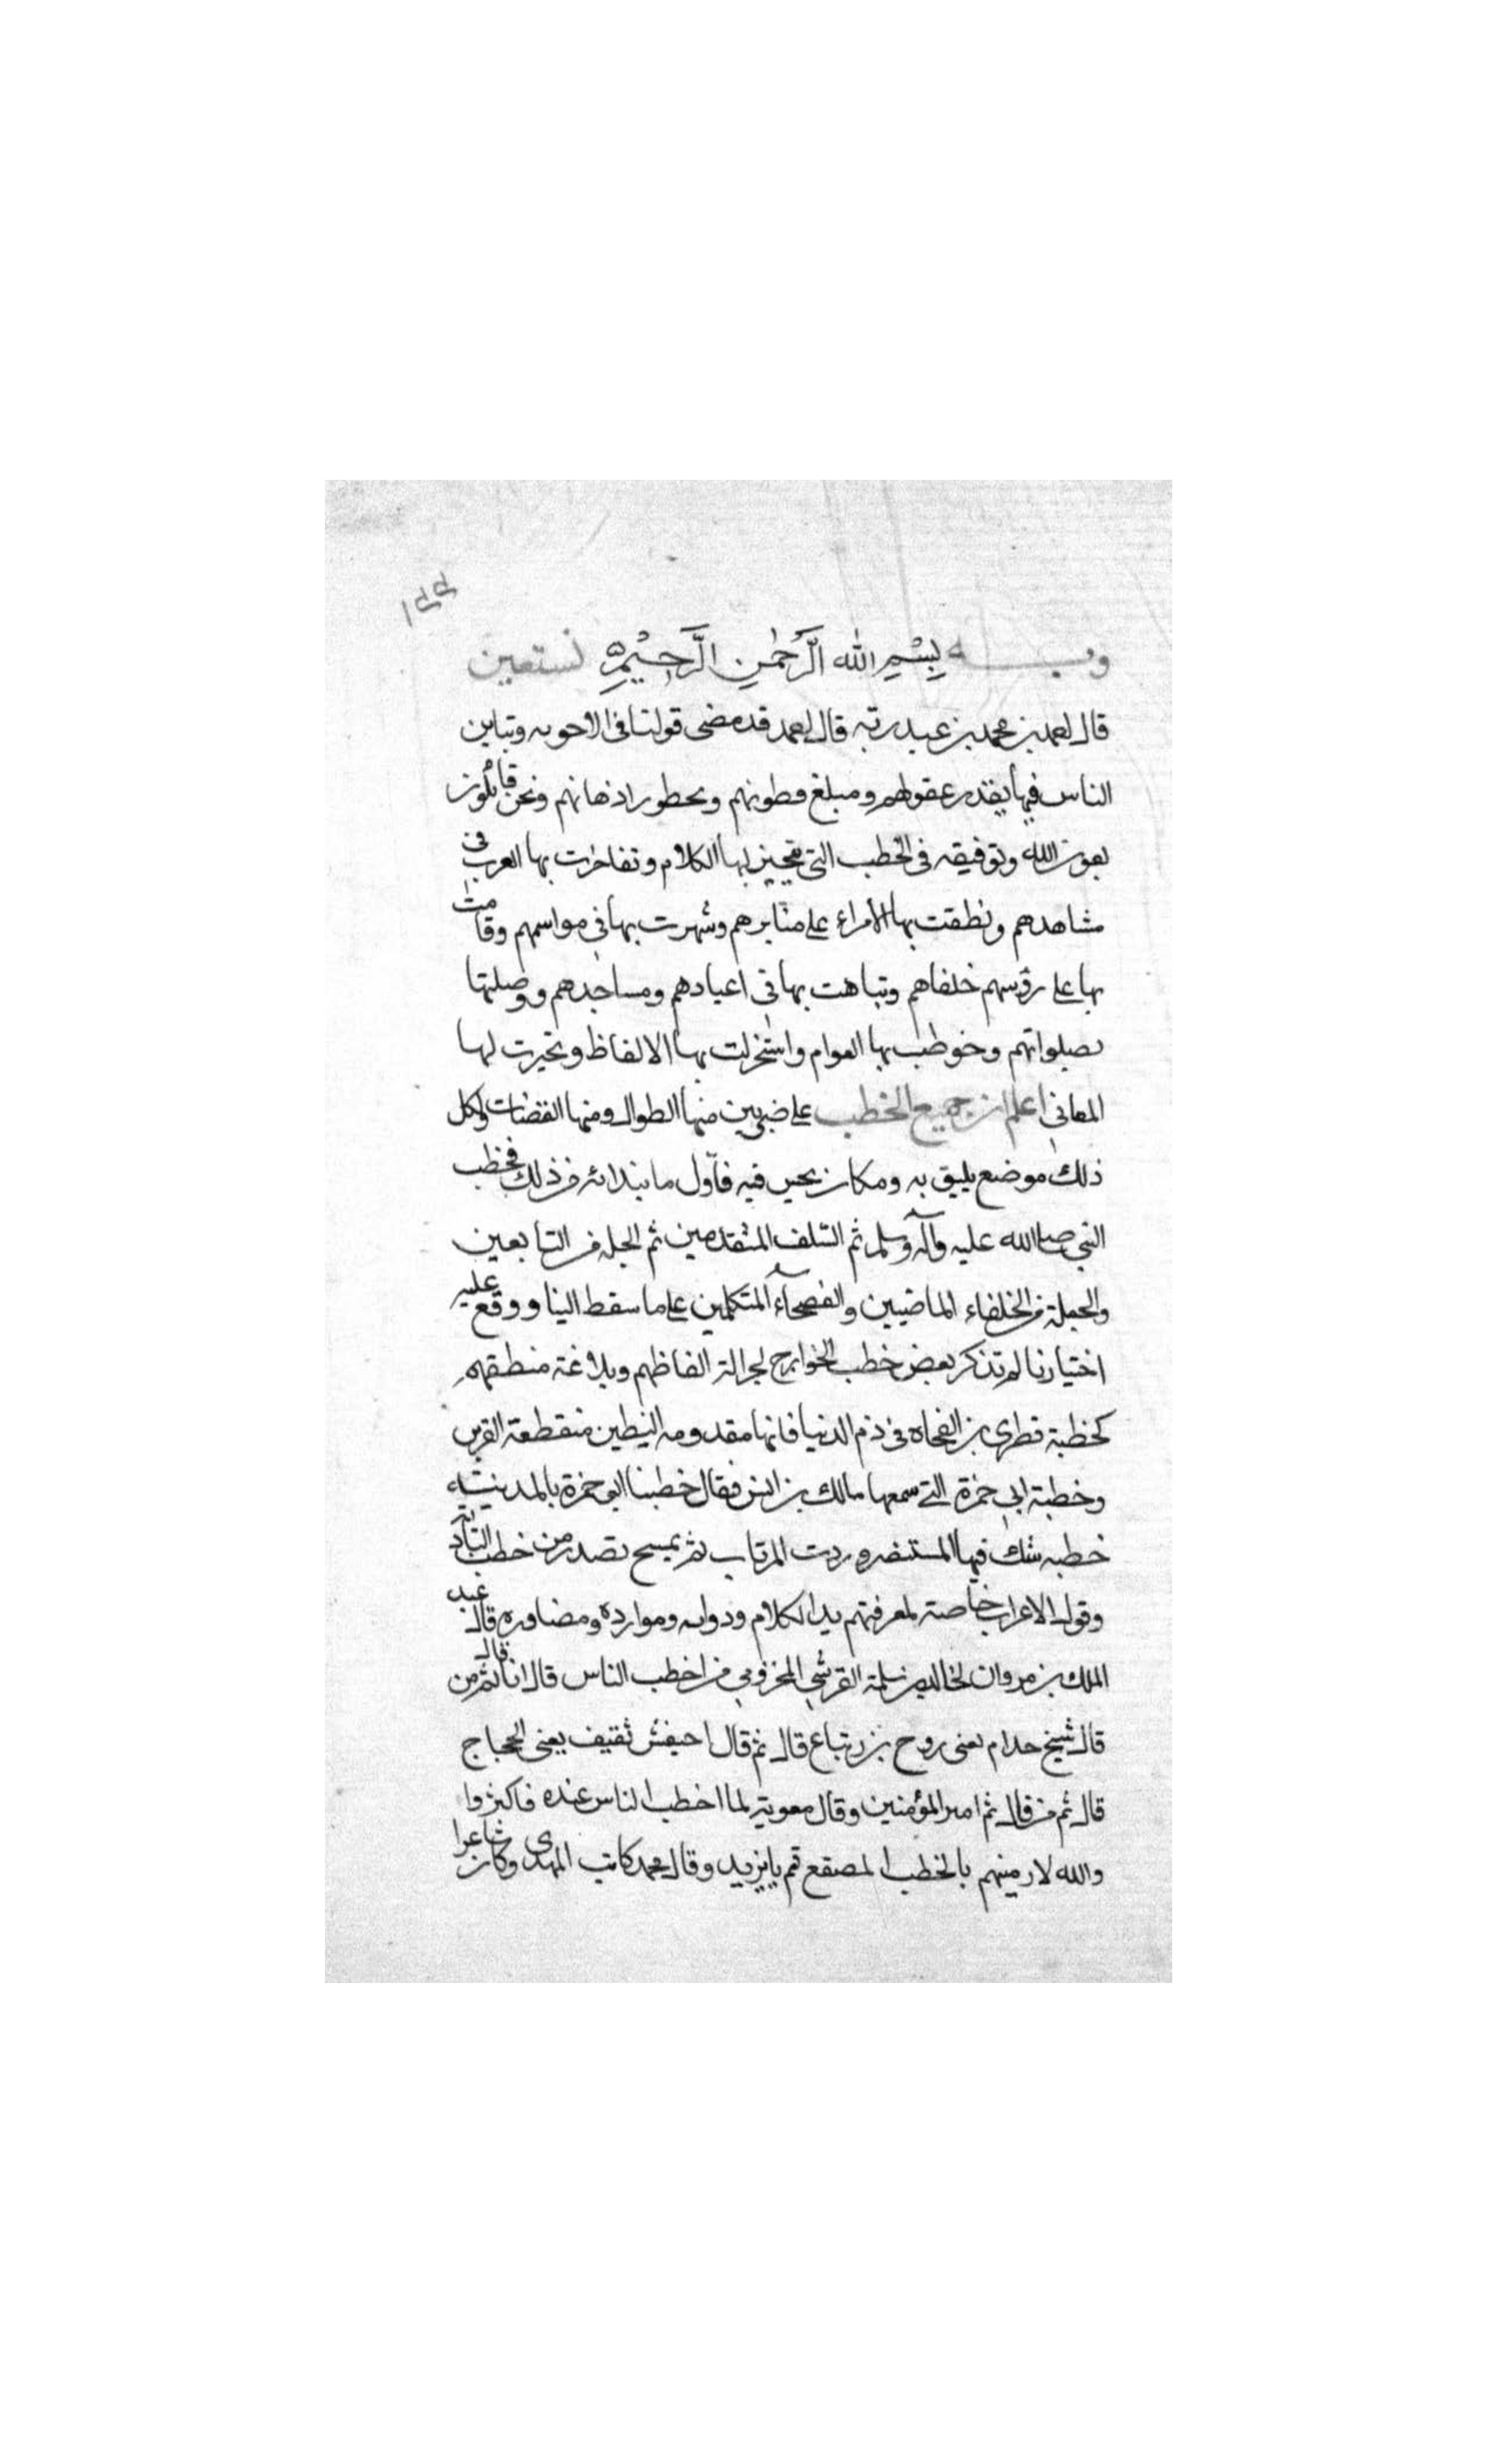 ١٤٤
وبه بِسْمِ اللهِ الرَّحْمٰنِ الرَّحِيْمِ نستعين
قال احمد بن محمد بن عبد ربه قال احمد قد مضى قولنا فى الاجوبه وتباين
الناس فيها بقدر عقولهم ومبلغ فطونهم وحطور اذهانهم ونحن قائلون
بعون الله وتوفيقه فى الخطب التى يتخير لها الكلام وتفاخرت بها العرب فى
مشاهدهم ونطقت بها الأمراء على منابرهم وشهرت بها فى مواسمهم وقامت
بها على رؤسهم خلفاهم وتباهت بها فى اعيادهم ومساجدهم ووصلتها
بصلواتهم وخوطب بها العوام واستجزلت بها الالفاظ وتخيرت لها
المعانى اعلم ان جميع الخطب على ضربين منها الطوال ومنها القصار ولكل
ذلك موضع يليق به ومكان يحسن فيه فأول ما نبدا به من ذلك فخطب
النبى صلى الله عليه وآله وسلم ثم السّلف المتقدمين ثم الجله من التابعين
والجملة من الخلفاء الماضيين والفصحآء المتكلمين على ما سقط الينا ووقع عليه
اختيارنا ثم نذكر بعض خطب الخوارج لجزالة الفاظهم وبلاغة منطقهم
كخطبة قطرى بن الفجاه فى ذم الدنيا فانها
وخطبة ابى حمزة التى سمعها مالك بن انس فقال خطبنا ابو حمزة بالمدينة
خطبه شك فيها المستبصر وردت المرتاب ثم
وقول الاعراب خاصة لمعرفتهم بداء الكلام ودوايه وموارده ومصادره قال عبد
الملك بن مروان لخالد بن سلمة القرشى المخزومى من اخطب الناس قال انا قال ثم من
قال شيخ جدام يعنى روح بن زنباع قال ثم قال احيفش ثقيف يعنى الحجاج
قال ثم من قال ثم امير المؤمنين وقال معوية لما اخطب الناس عنده فاكثروا
والله لارمينهم بالخطب المصقع قم يا يزيد وقال محمد كاتب المهدى وكان شاعرا